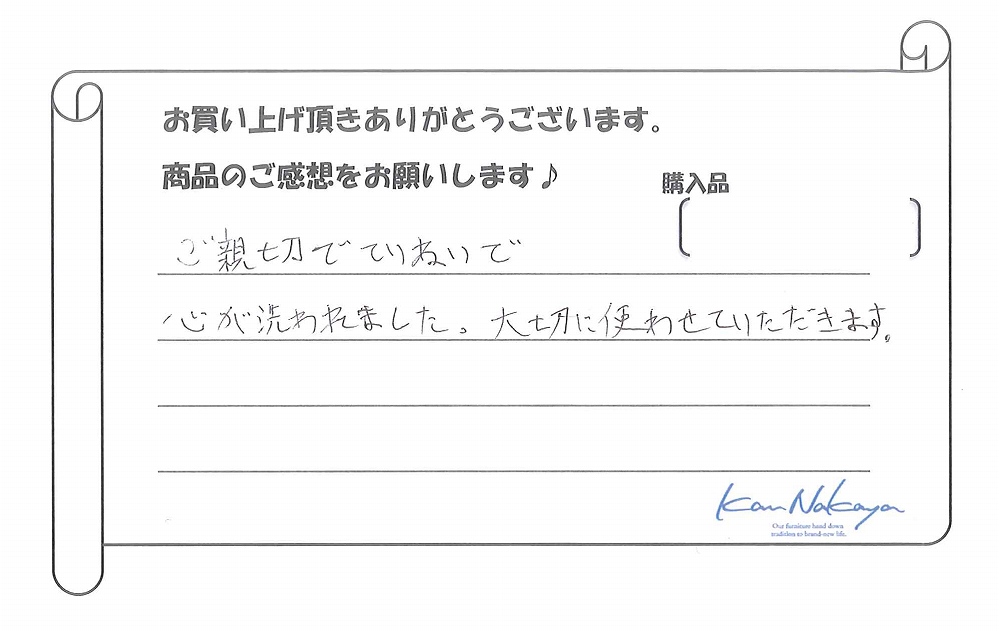 お買い上げ頂きありがとうございます。
商品のご感想をお願いします♪
購入品
ご親切でていねいで
心が洗われました。大切に使わせていただきます。
Kan Nakaya
Our furniture hand down
tradition to brand-new life.